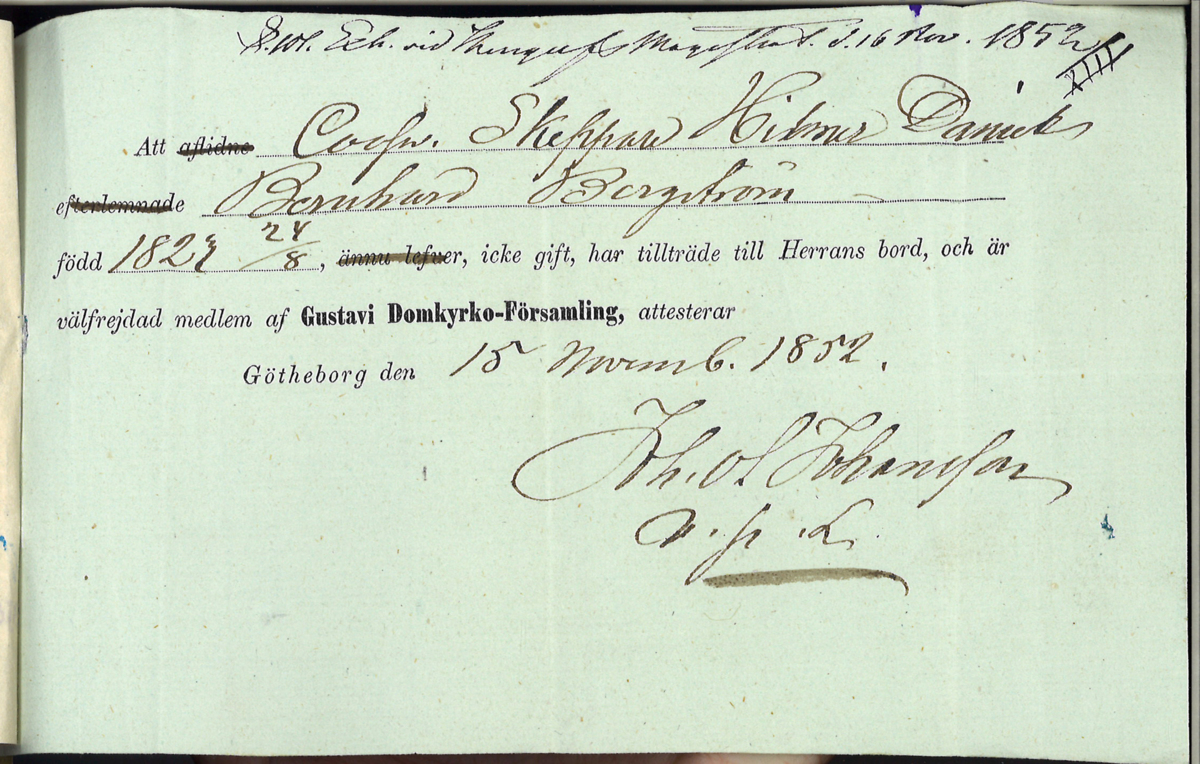 vid d. 16 Nov. 1852
Att aflidne Coofv. Skeppare Hilmer Daniel
efterlemnade Bernhard Bergström
född 1827 24/8, ännu lefver, icke gift, har tillträde till Herrans bord, och är
välfrejdad medlem af Gustavi Domkyrko-Församling, attesterar
Götheborg den 15 Novemb. 1852.
Joh. Ol. Johansson
v. p. L.